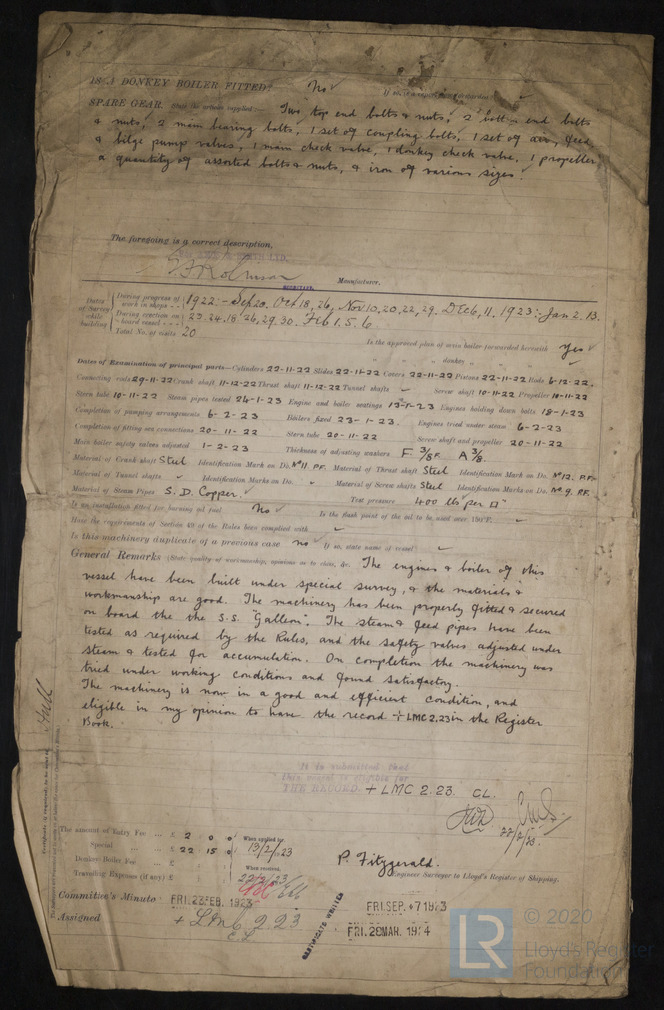 IS A DONKEY BOILER FITTED? No
SPARE GEAR. Two top end bolts & nuts, 2 bottom end bolts
& nuts, 2 main bearing bolts, 1 set of coupling bolts, 1 set of air, feed,
& bilge pump valves, 1 main check valve, 1 donkey check valve, 1 propeller,
a quantity of assorted bolts & nuts, & iron of various sizes.
The foregoing is a correct description,
Manufacturer.
Dates of Survey while building
During progress of work in shops - - 1922:- Sep 20, Oct 18, 26, Nov 10, 20, 22, 29. Dec 6, 11. 1923:- Jan 2. 13.
During erection on board vessel - - - 23. 24. 18. 26, 29. 30. Feb 1. 5. 6
Total No. of visits 20
Is the approved plan of main boiler forwarded herewith Yes
" " " donkey " "
Dates of Examination of principal parts—Cylinders 22-11-22 Slides 22-11-22 Covers 22-11-22 Pistons 22-11-22 Rods 6-12-22
Connecting rods 29-11-22 Crank shaft 11-12-22 Thrust shaft 11-12-22 Tunnel shafts ✓ Screw shaft 10-11-22 Propeller 10-11-22
Stern tube 10-11-22 Steam pipes tested 24-1-23 Engine and boiler seatings Engines holding down bolts 18-1-23
Completion of pumping arrangements 6-2-23 Boilers fixed 23-1-23. Engines tried under steam 6-2-23
Completion of fitting sea connections 20-11-22 Stern tube 20-11-22 Screw shaft and propeller 20-11-22
Main boiler safety valves adjusted 1-2-23 Thickness of adjusting washers F 3/8 F. A 3/8.
Material of Crank shaft Steel Identification Mark on Do. No 11. P.F. Material of Thrust shaft Steel Identification Mark on Do. No 12. P.F.
Material of Tunnel shafts ✓ Identification Marks on Do. ✓ Material of Screw shafts Steel Identification Marks on Do. No 9. P.F.
Material of Steam Pipes S. D. Copper. ✓ Test pressure 400 lbs per □"
Is an installation fitted for burning oil fuel No ✓ Is the flash point of the oil to be used over 150°F. ✓
Have the requirements of Section 49 of the Rules been complied with ✓
Is this machinery duplicate of a previous case no ✓ If so, state name of vessel ✓
General Remarks (State quality of workmanship, opinions as to class, &c. The engines & boiler of this
vessel have been built under special survey, & the materials &
workmanship are good. The machinery has been properly fitted & secured
on board the the S.S. "Galleon". The steam & feed pipes have been
tested as required by the Rules, and the safety valves adjusted under
steam & tested for accumulation. On completion the machinery was
tried under working conditions and found satisfactory.
The machinery is now in a good and efficient condition, and
eligible in my opinion to have the record + LMC 2.23 in the Register
Book.
It is submitted that
this vessel is eligible for
THE RECORD. + LMC 2.23. CL.
22/2/23.
Hull
The amount of Entry Fee ... £ 2 : 0 : 0
Special ... ... £ 22 : 15 : 0
Donkey Boiler Fee ... £
Travelling Expenses (if any) £
When applied for.
13/2/1923
When received.
22/2/23
P. Fitzgerald.
Engineer Surveyor to Lloyd's Register of Shipping.
Committee's Minute FRI. 23 FEB. 1923
FRI. SEP. -7 1923
Assigned + LMC 2.23
CL
FRI. 28 MAR. 1924
CERTIFICATE WRITTEN
LR
© 2020
Lloyd's Register
Foundation